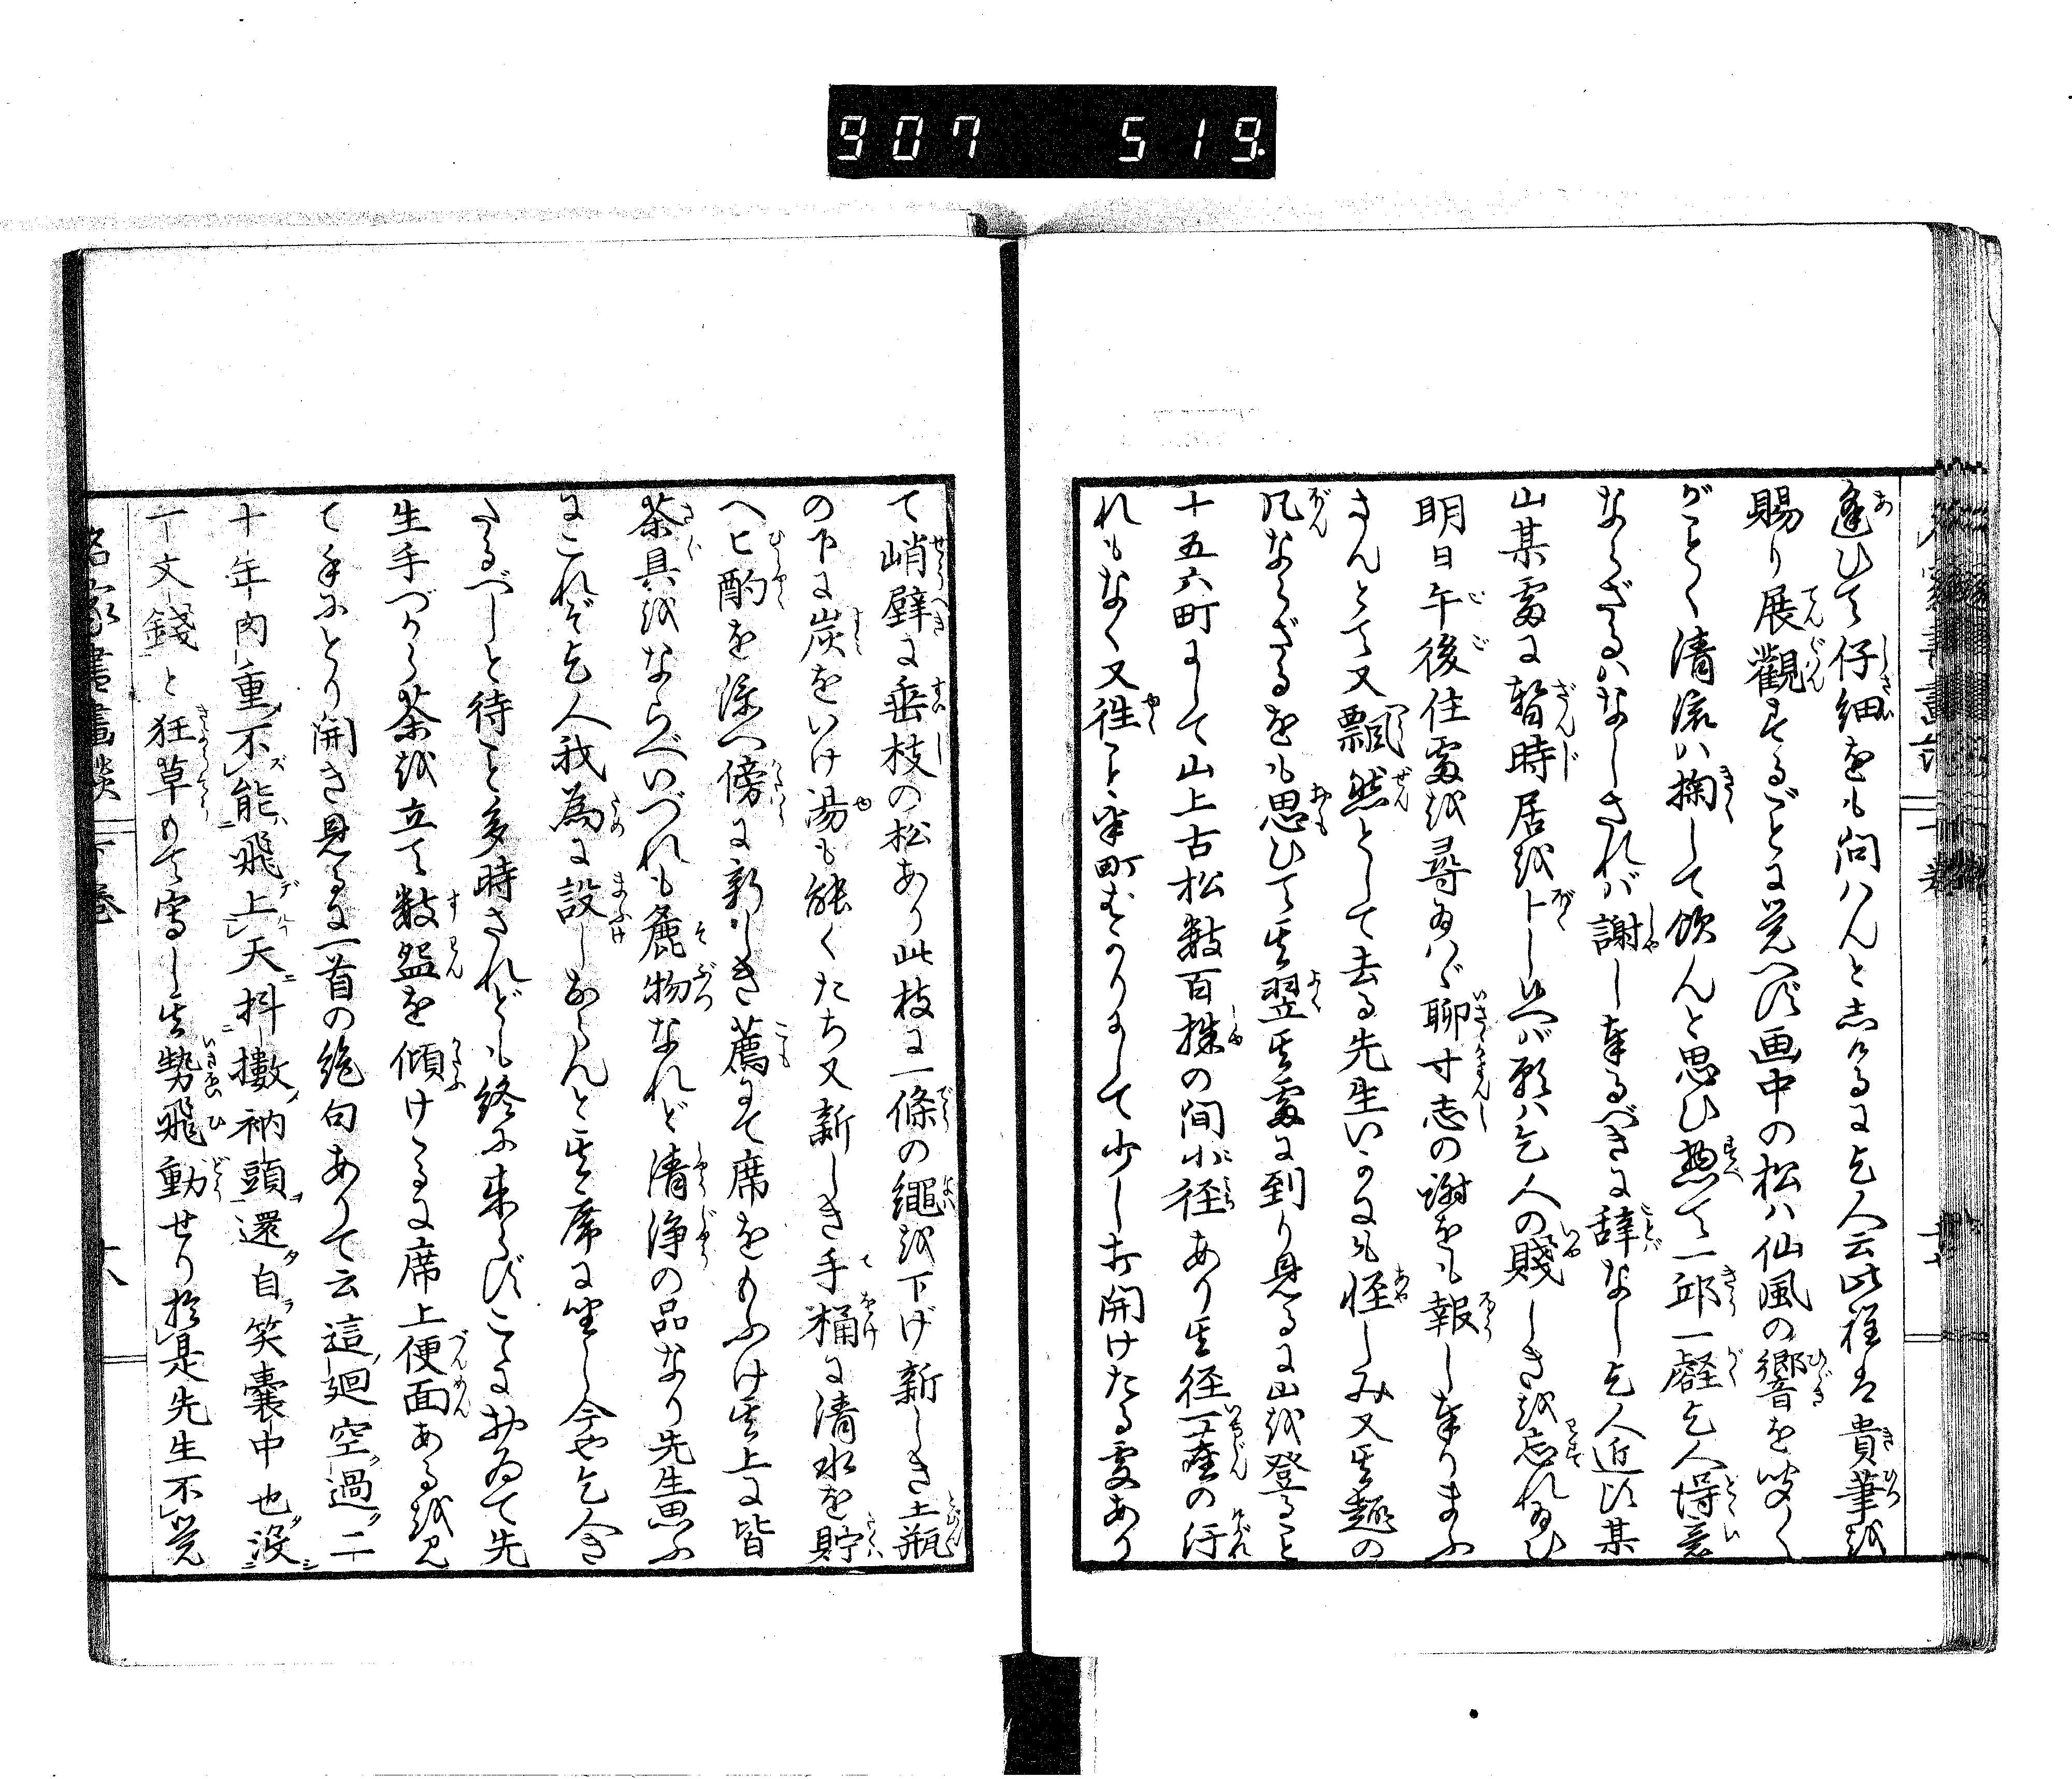 907 519
逢ひて仔細をも問ハんと志けるに乞人云此程は貴筆を
賜り展觀するごとに覚へず画中の松ハ仙風の響を吹く
がごとく清流ハ掬して飲んと思ひ惣て一邱一壑乞人得意
ならざるハなしされバ謝し奉るべきに辞なし乞人近頃某
山某處に暫時居をトし侍バ願ハ乞人の賤しきを忘れ給ひ
明日午後住處を尋給ハヾ聊寸志の謝をも報し奉りまふ
さんとて又飄然として去る先生いかにも怪しみ又其趣の
凡ならざるをも思ひて其翌其處に到り見るに山を登ると
十五六町にして山上古松数百株の间小径あり其径一塵の汚
れもなく又徃こと半町ばかりにして少し打開けたる処あり
て峭壁に垂枝の松あり此枝に一條の繩を下げ新しき土瓶
の下に炭をいけ湯も能くたち又新しき手桶に清水を貯
へヒ酌を添へ傍に新しき薦にて席をもふけ其上に皆
茶具をならべいづれも麁物なれど清浄の品なり先生思ふ
にこれぞ乞人我為に設しならんと其席に坐し今や乞人き
たるべしと待こと多時されども終に来らずこゝにおゐて先
生手づから茶を立て数盌を傾けけるに席上便面あるを見
て手にとり開き見るに一首の絶句ありて云這廻空過二
十年内重不能飛上天抖擻衲頭還自笑嚢中也没
一文錢と狂草もて寫し其勢飛動せり於是先生不覚
名家書畫談 下巻 十八